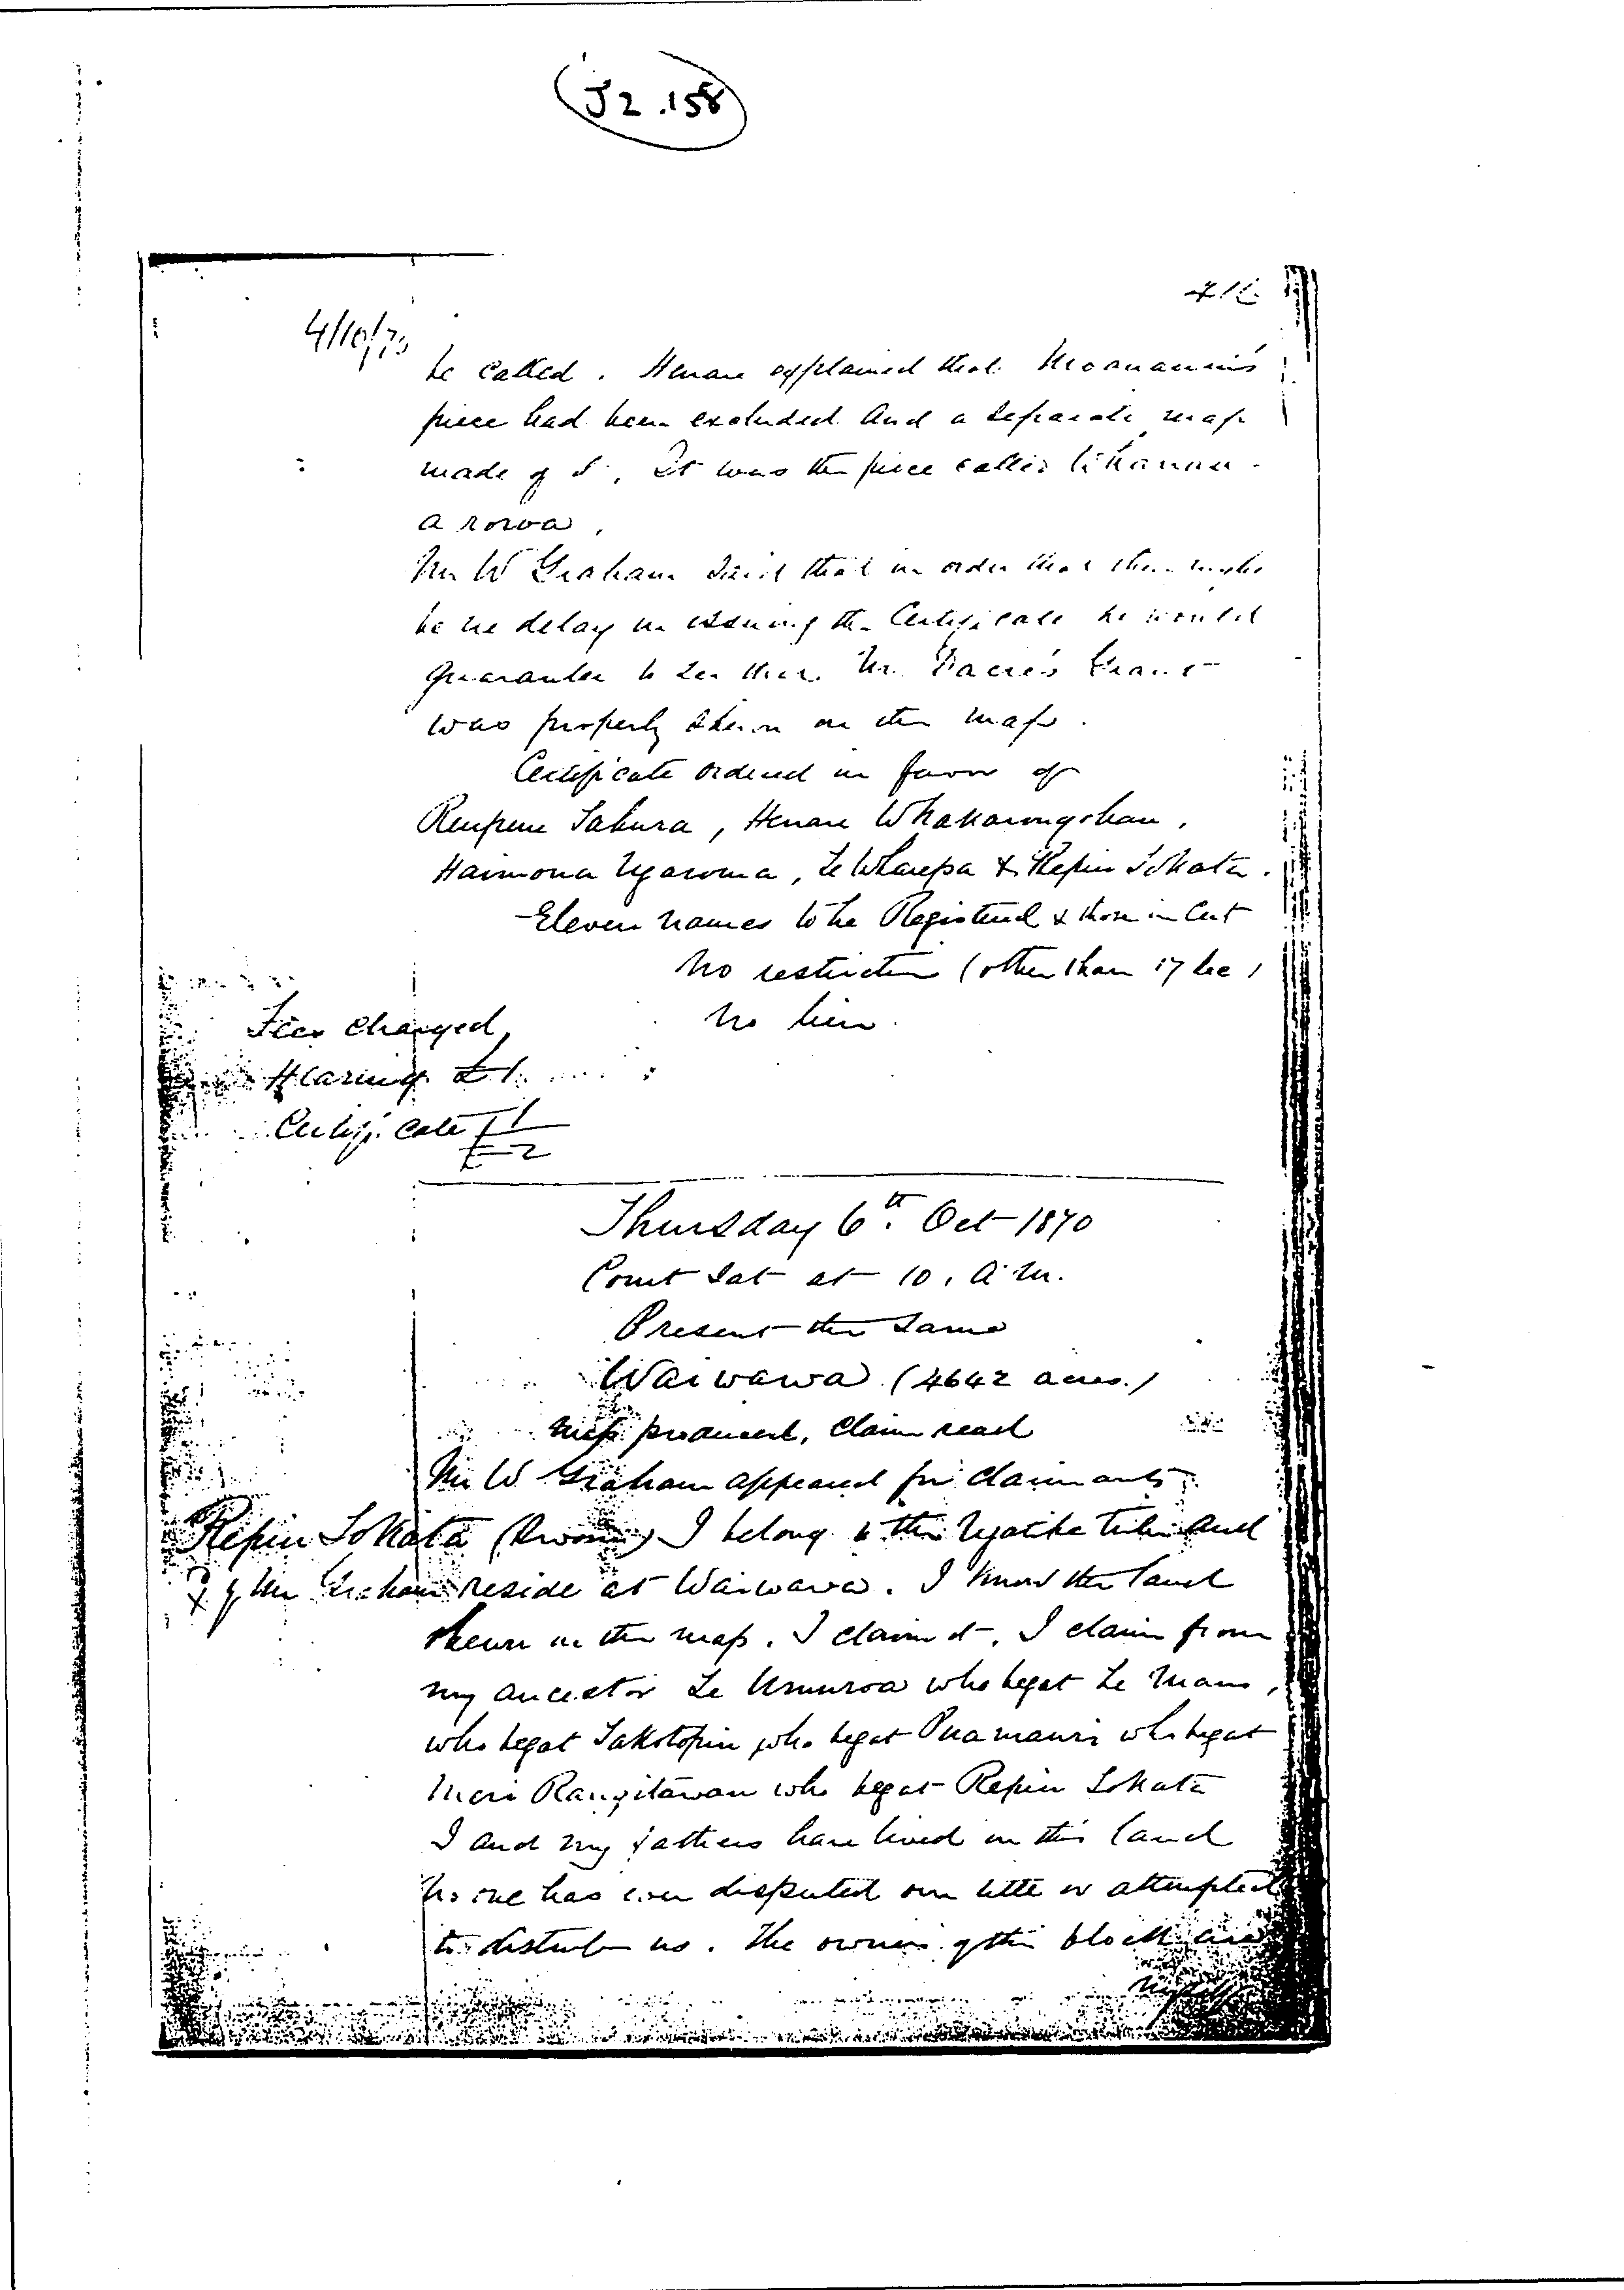 J2.158
4/10/70
be called. Henare explained that Moananui's
piece had been excluded and a separate map
made of it. It was the piece called
a roroa.
Mr W Graham said that in order that there might
be no delay in issuing the Certificate he would
guarantee to see that Mr. Grant
was properly shewn on the map.
Certificate ordered in favor of
Reupene Tahura, Henare Whakarongohau,
Haimona Ngaroma, Te Wharepa & Repin Tokata.
Eleven names to be Registered & those in Cert
No restriction (other than 17 Sec)
No lien.
Fees Charged
Hearing £1
Certificate £1
£2
Thursday 6th. Oct 1870
Court sat at 10. A.M.
Present the same
Waiwawa (4642 acres.)
Map produced, Claim read
Mr W Graham appeared for Claimants
Repin Tokata (Sworn) I belong to the tribe and
X by Mr Graham reside at Waiwawa. I know the land
shewn in the map. I claim it. I claim from
my ancestor Te Umuroa who begat Te Mans,
who begat Takotopiri who begat Puamauri who begat
Meri Rangitawau who begat Repin Tokata
I and my fathers have lived on this land
No one has ever disputed our title or attempted
to disturb us. The owners of this block are
myself